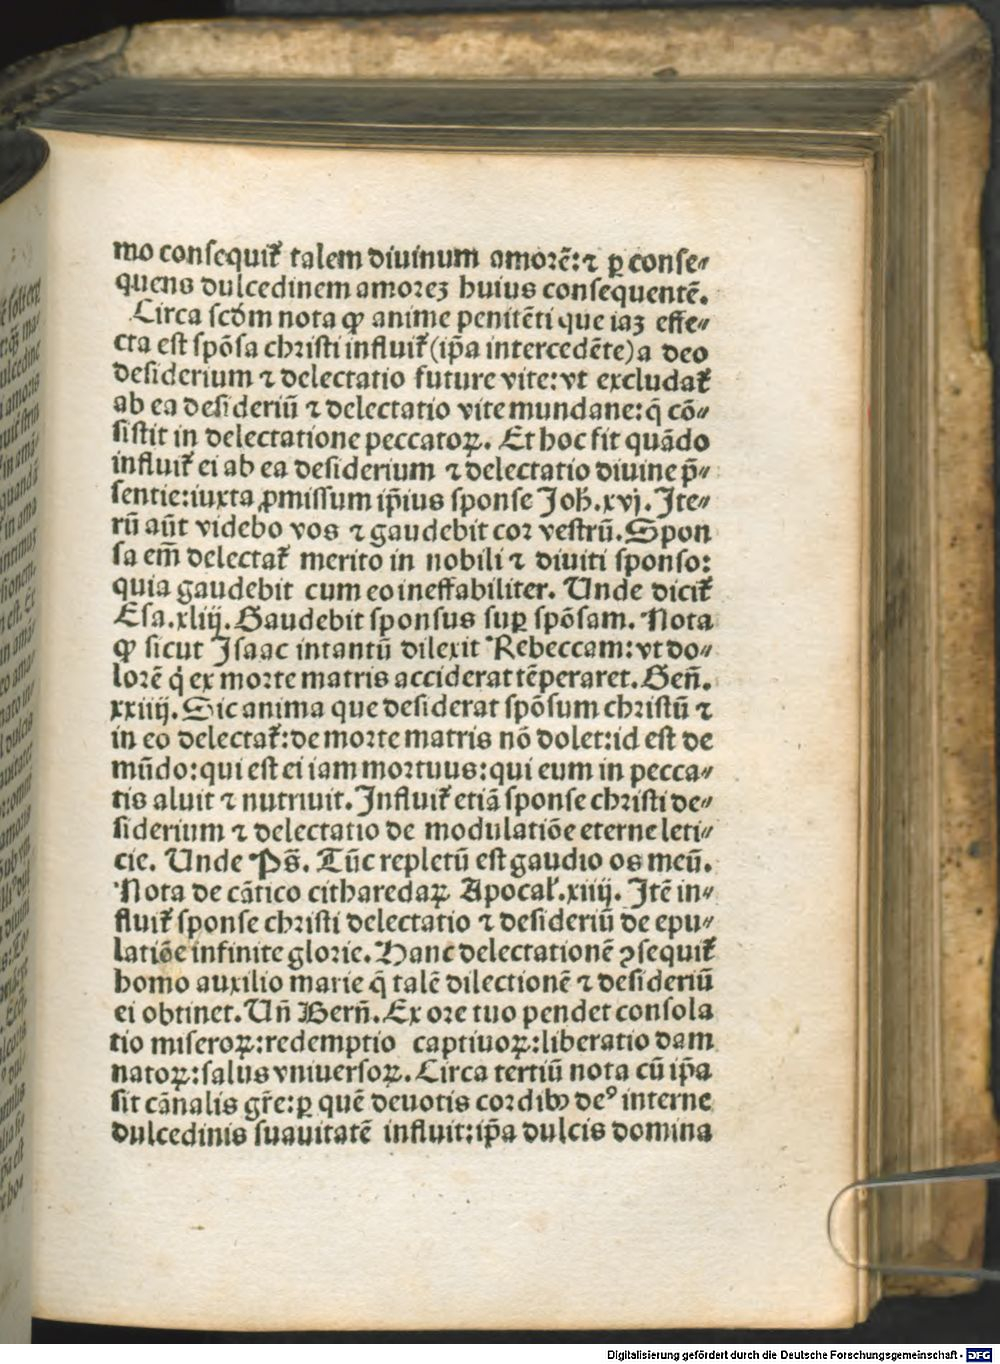 mo consequit᷑ talem diuinum amorē:⁊ ꝑ conse⸗
quens dulcedinem amoreꝫ huius consequentē.
Circa scd̄m nota ꝙ anime penitēti que iaꝫ effe⸗
cta est spōsa christi influit᷑ (ip̄a intercedēte) a deo
desiderium ⁊ delectatio future vite:vt excludat᷑
ab ea desideriū ⁊ delectatio vite mundane:q̄ cō⸗
sistit in delectatione peccatoꝝ. Et hoc fit quādo
influit᷑ ei ab ea desiderium ⁊ delectatio diuine p̄⸗
sentie:iuxta ꝓmissum ip̄ius sponse Joh̄.xvj. Ite⸗
rū aūt videbo vos ⁊ gaudebit cor vestrū. Spon
sa em̄ delectat᷑ merito in nobili ⁊ diuiti sponso:
quia gaudebit cum eo ineffabiliter. Unde dicit᷑
Esa.xliij. Gaudebit sponsus suꝑ spōsam. Nota
ꝙ sicut Isaac intantū dilexit Rebeccam:vt do⸗
lorē q̇ ex morte matris acciderat tēperaret. Geń.
xxiiij. Sic anima que desiderat spōsum christū ⁊
in eo delectat᷑:de morte matris nō dolet:id est de
mūdo:qui est ei iam mortuus:qui eum in pecca⸗
tis aluit ⁊ nutriuit. Influit᷑ etiā sponse christi de⸗
siderium ⁊ delectatio de modulatiōe eterne leti⸗
cie. Unde Ps̄. Tūc repletū est gaudio os meū.
Nota de cātico citharedaꝝ Apocal᷑.xiiij. Itē in⸗
fluit᷑ sponse christi delectatio ⁊ desideriū de epu⸗
latiōe infinite glorie. Hanc delectationē ꝯsequit᷑
homo auxilio marie q̄ talē dilectionē ⁊ desideriū
ei obtinet. Uń Berń. Ex ore tuo pendet consola
tio miseroꝝ:redemptio captiuoꝝ:liberatio dam
natoꝝ:salus vniuersoꝝ. Circa tertiū nota cū ip̄a
sit cānalis gr̄e:ꝑ quē deuotis cordibꝰ deꝰ interne
dulcedinis suauitatē influit:ip̄a dulcis domina
Digitalisierung gefördert durch die Deutsche Forschungsgemeinschaft - DFG